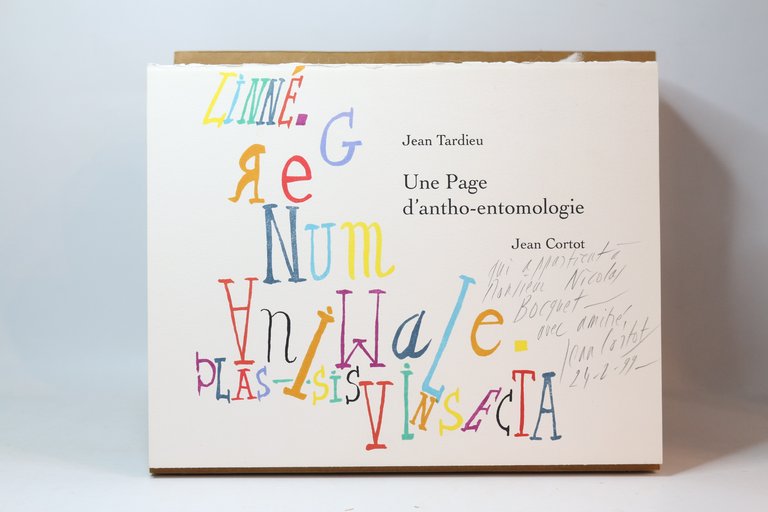 LINNÉ.
REGNUM
ANIMALE.
CLASSIS V INSECTA
Jean Tardieu
Une Page
d'antho-entomologie
Jean Cortot
qui appartient à
Monsieur Nicolas
Bocquet
avec amitié,
Jean Cortot